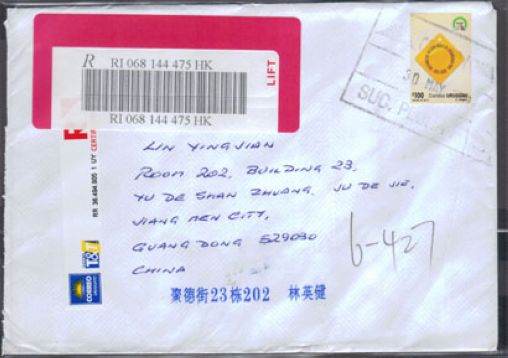 R RI 068 144 475 HK
RI 068 144 475 HK
LIFT
$100 Correos URUGUAY
30 MAY
SUC.
RR 36.494.905 1 UY CERTI
CORREO
LIN YINGJIAN
ROOM 202, BUILDING 23,
YU DE SHAN ZHUANG, JU DE JIE,
JIANG MEN CITY,
GUANG DONG 529030
CHINA
6-427
聚德街23栋202 林英健